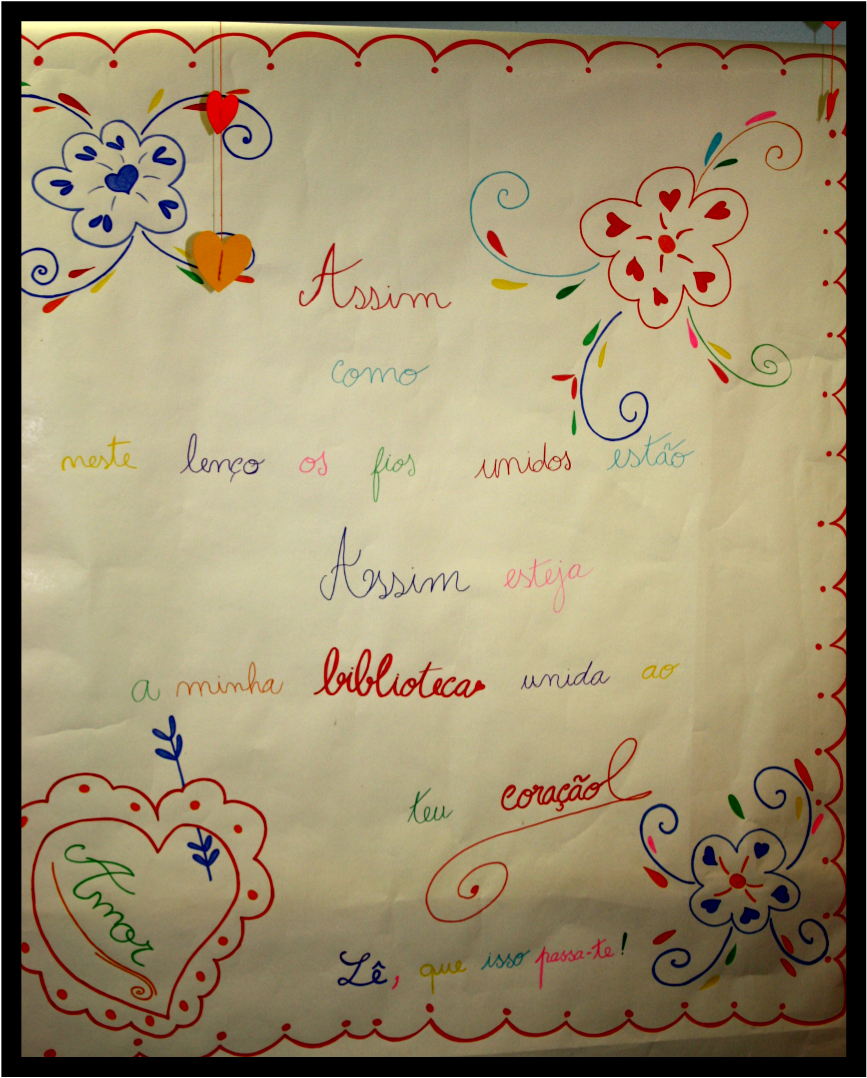 Assim
como
neste lenço os fios unidos estão
Assim esteja
a minha biblioteca unida ao
teu coração
Amor
Lê, que isso passa-te!